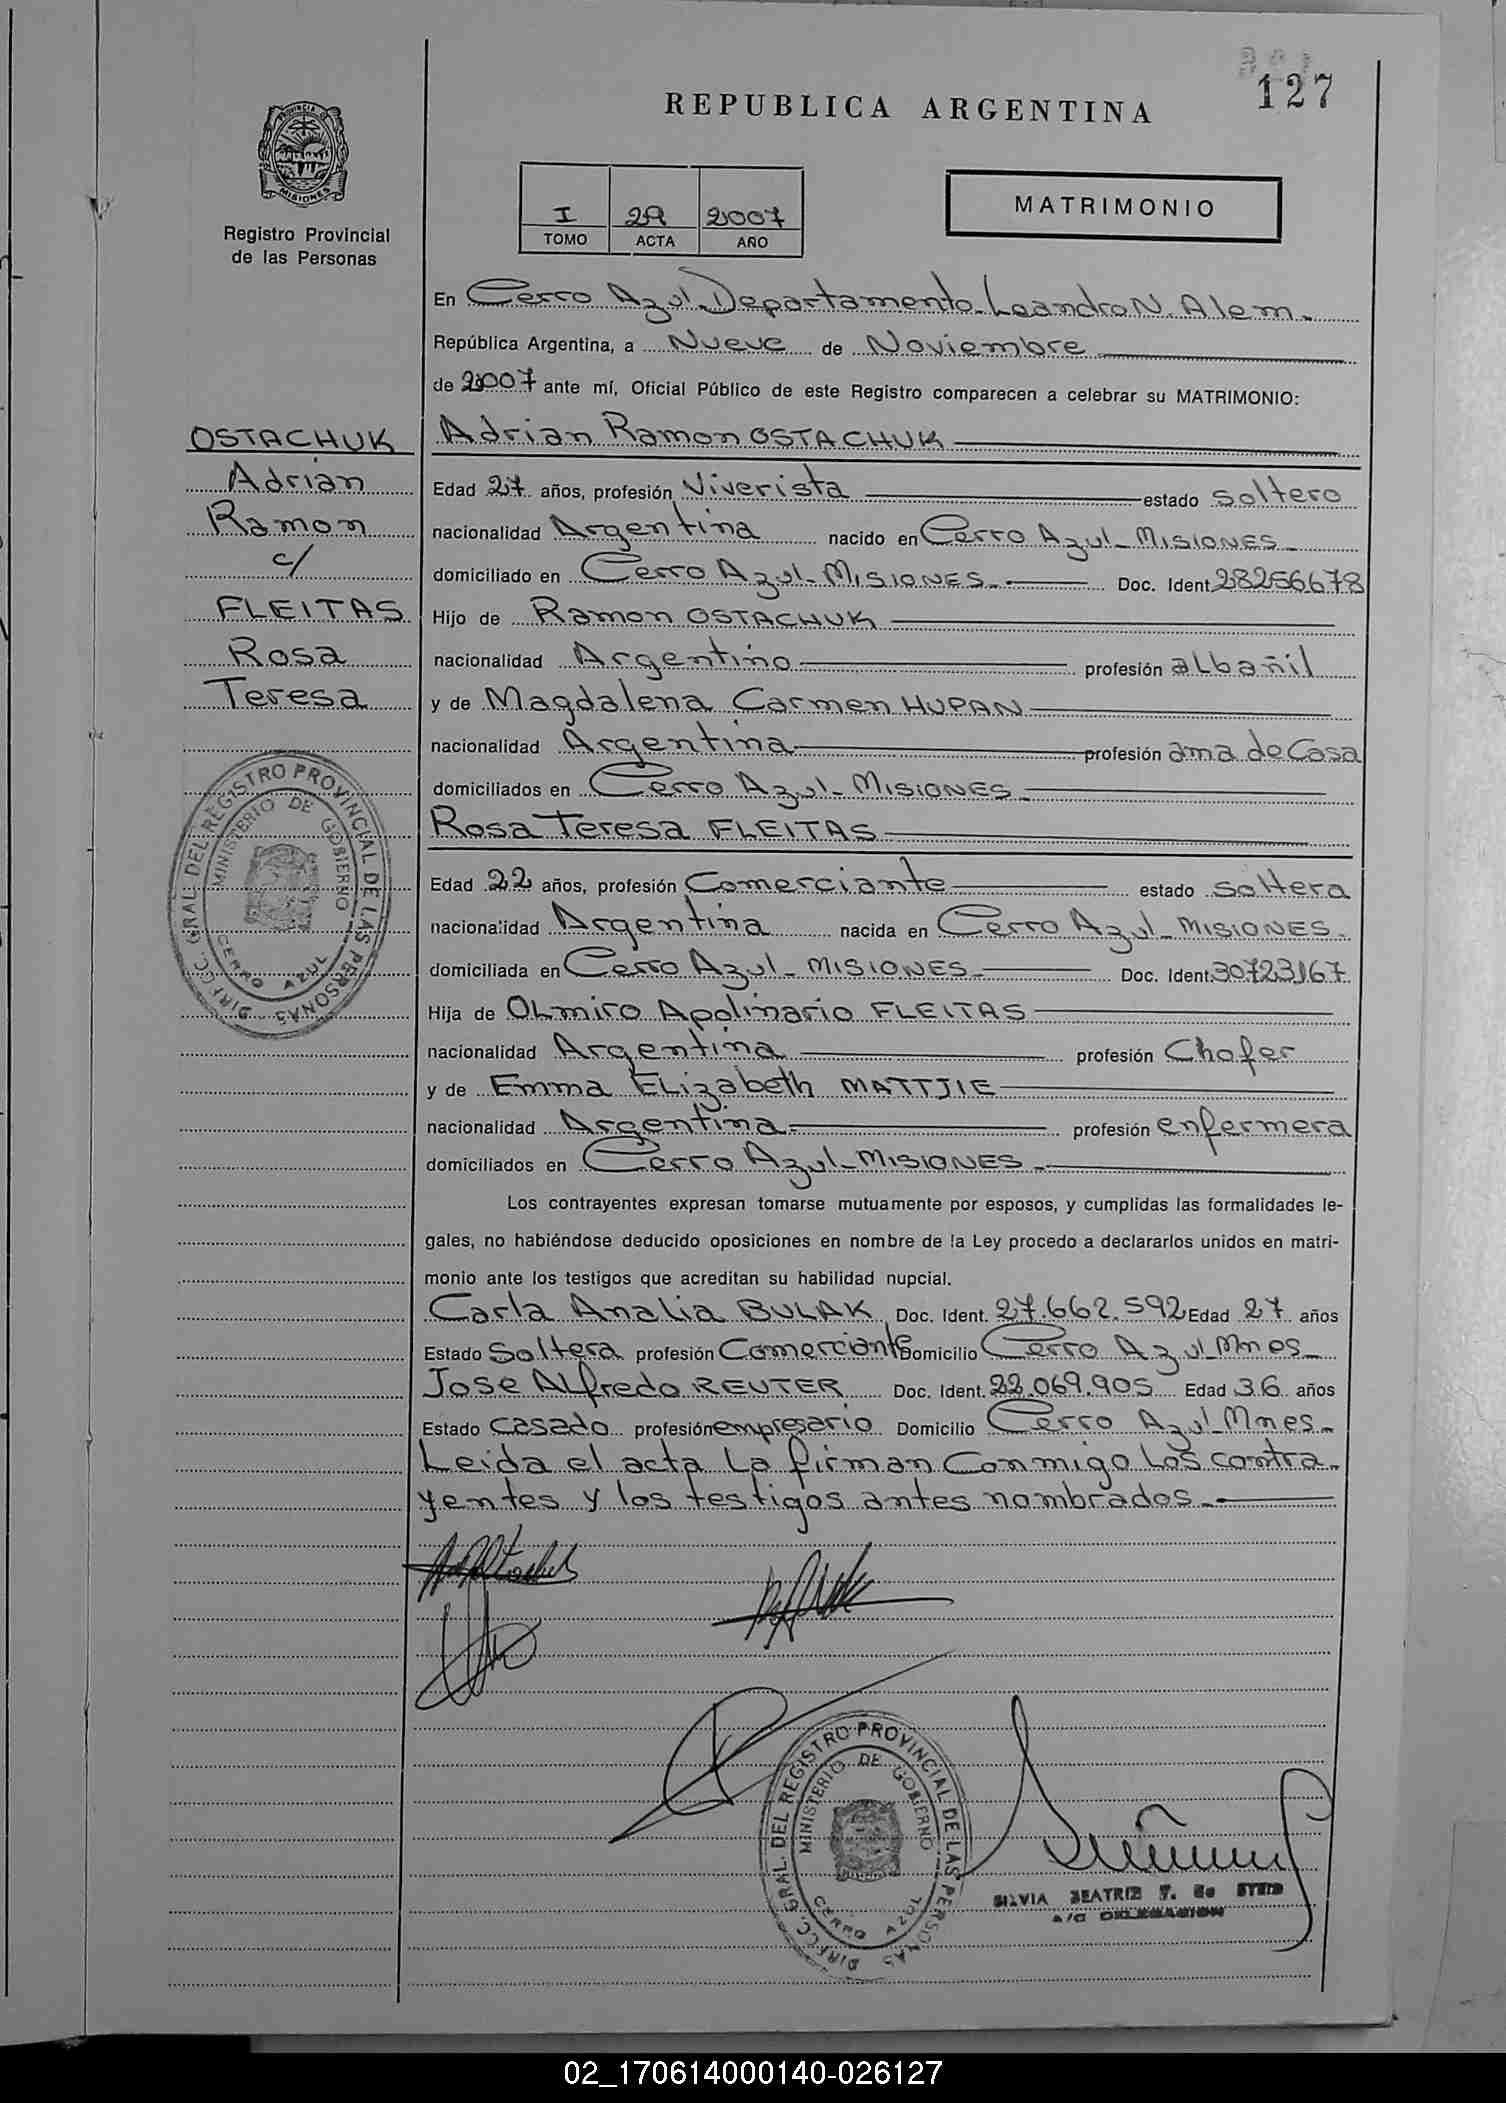 127
REPUBLICA ARGENTINA
PROVINCIA DE MISIONES
Registro Provincial
de las Personas
I 29 2007
TOMO ACTA AÑO
MATRIMONIO
En Cerro Azul-Departamento-Leandro N. Alem-
República Argentina, a Nueve de Noviembre
de 2007 ante mí, Oficial Público de este Registro comparecen a celebrar su MATRIMONIO:
OSTACHUK
Adrian
Ramon
c/
FLEITAS
Rosa
Teresa
Adrian Ramon OSTACHUK
Edad 27 años, profesión Viverista estado soltero
nacionalidad Argentina nacido en Cerro Azul-MISIONES-
domiciliado en Cerro Azul-MISIONES- Doc. Ident. 28256678
Hijo de Ramon OSTACHUK
nacionalidad Argentino profesión albañil
y de Magdalena Carmen HUPAN
nacionalidad Argentina profesión ama de Casa
domiciliados en Cerro Azul-MISIONES-
Rosa Teresa FLEITAS
Edad 22 años, profesión Comerciante estado soltera
nacionalidad Argentina nacida en Cerro Azul-MISIONES-
domiciliada en Cerro Azul-MISIONES- Doc. Ident. 30723167
Hija de OLmiro Apolinario FLEITAS
nacionalidad Argentina profesión Chofer
y de Emma ELizabeth MATTJIE
nacionalidad Argentina profesión enfermera
domiciliados en Cerro Azul-MISIONES-
Los contrayentes expresan tomarse mutuamente por esposos, y cumplidas las formalidades le-
gales, no habiéndose deducido oposiciones en nombre de la Ley procedo a declararlos unidos en matri-
monio ante los testigos que acreditan su habilidad nupcial.
Carla Analia BULAK Doc. Ident. 27.662.592 Edad 27 años
Estado Soltera profesión Comerciante Domicilio Cerro Azul-Mnes-
Jose ALfredo REUTER Doc. Ident. 22.069.905 Edad 36 años
Estado casado profesión empresario Domicilio Cerro Azul-Mnes-
Leida el acta La firman Conmigo Los contra-
yentes y los testigos antes nombrados-
DIRECC. GRAL. DEL REGISTRO PROVINCIAL DE LAS PERSONAS
MINISTERIO DE GOBIERNO
CERRO AZUL
DIRECC. GRAL. DEL REGISTRO PROVINCIAL DE LAS PERSONAS
MINISTERIO DE GOBIERNO
CERRO AZUL
SILVIA BEATRIZ F. de
A/C DELEGACION
02_170614000140-026127